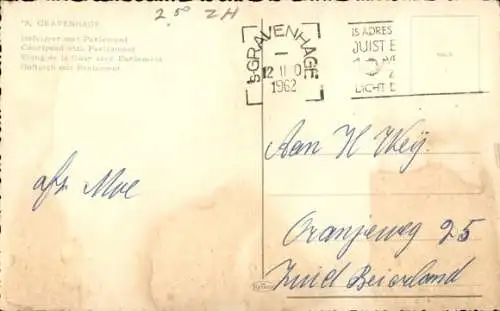 2.50 ZH
'S, GRAVENHAGE
Hofvijver met Parlement
Courtpond with Parliament
Etang de la Cour avec Parlement
Hofteich mit Parlament
'S GRAVENHAGE
12 II 0
1962
IS ADRES
JUIST E
LICHT E
Aan H Key.
afz. Moe
Oranjeweg 25
Zuid Beierland